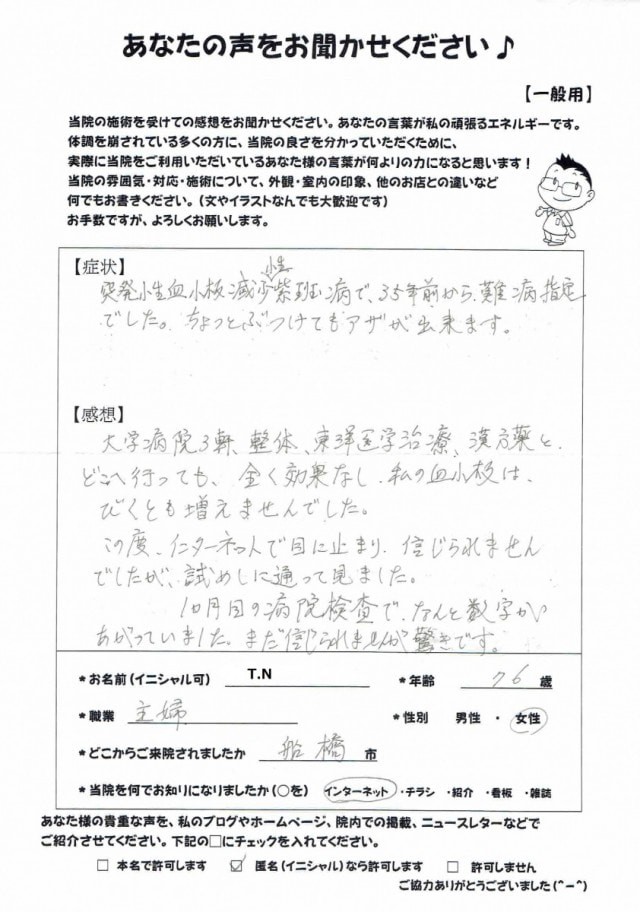 あなたの声をお聞かせください♪
【一般用】
当院の施術を受けての感想をお聞かせください。あなたの言葉が私の頑張るエネルギーです。
体調を崩されている多くの方に、当院の良さを分かっていただくために、
実際に当院をご利用いただいているあなた様の言葉が何よりの力になると思います！
当院の雰囲気・対応・施術について、外観・室内の印象、他のお店との違いなど
何でもお書きください。（文やイラストなんでも大歓迎です）
お手数ですが、よろしくお願いします。
【症状】
突発性血小板減少性紫斑病で、35年前から、難病指定
でした。ちょっとぶつけてもアザが出来ます。
【感想】
大学病院3軒、整体、東洋医学治療、漢方薬と、
どこへ行っても、全く効果なし、私の血小板は、
びくとも増えませんでした。
この度、インターネットで目に止まり、信じられません
でしたが、試めしに通って見ました。
1カ月目の病院検査で、なんと数字が
あがっていました。まだ信じられませんが驚きです。
*お名前（イニシャル可） T.N *年齢 76 歳
*職業 主婦 *性別 男性 ・ 女性
*どこからご来院されましたか 船橋 市
*当院を何でお知りになりましたか（〇を） インターネット ・チラシ ・紹介 ・看板 ・雑誌
あなた様の貴重な声を、私のブログやホームページ、院内での掲載、ニュースレターなどで
ご紹介させてください。下記の□にチェックを入れてください。
□ 本名で許可します ☑ 匿名（イニシャル）なら許可します □ 許可しません
ご協力ありがとうございました（^－^）